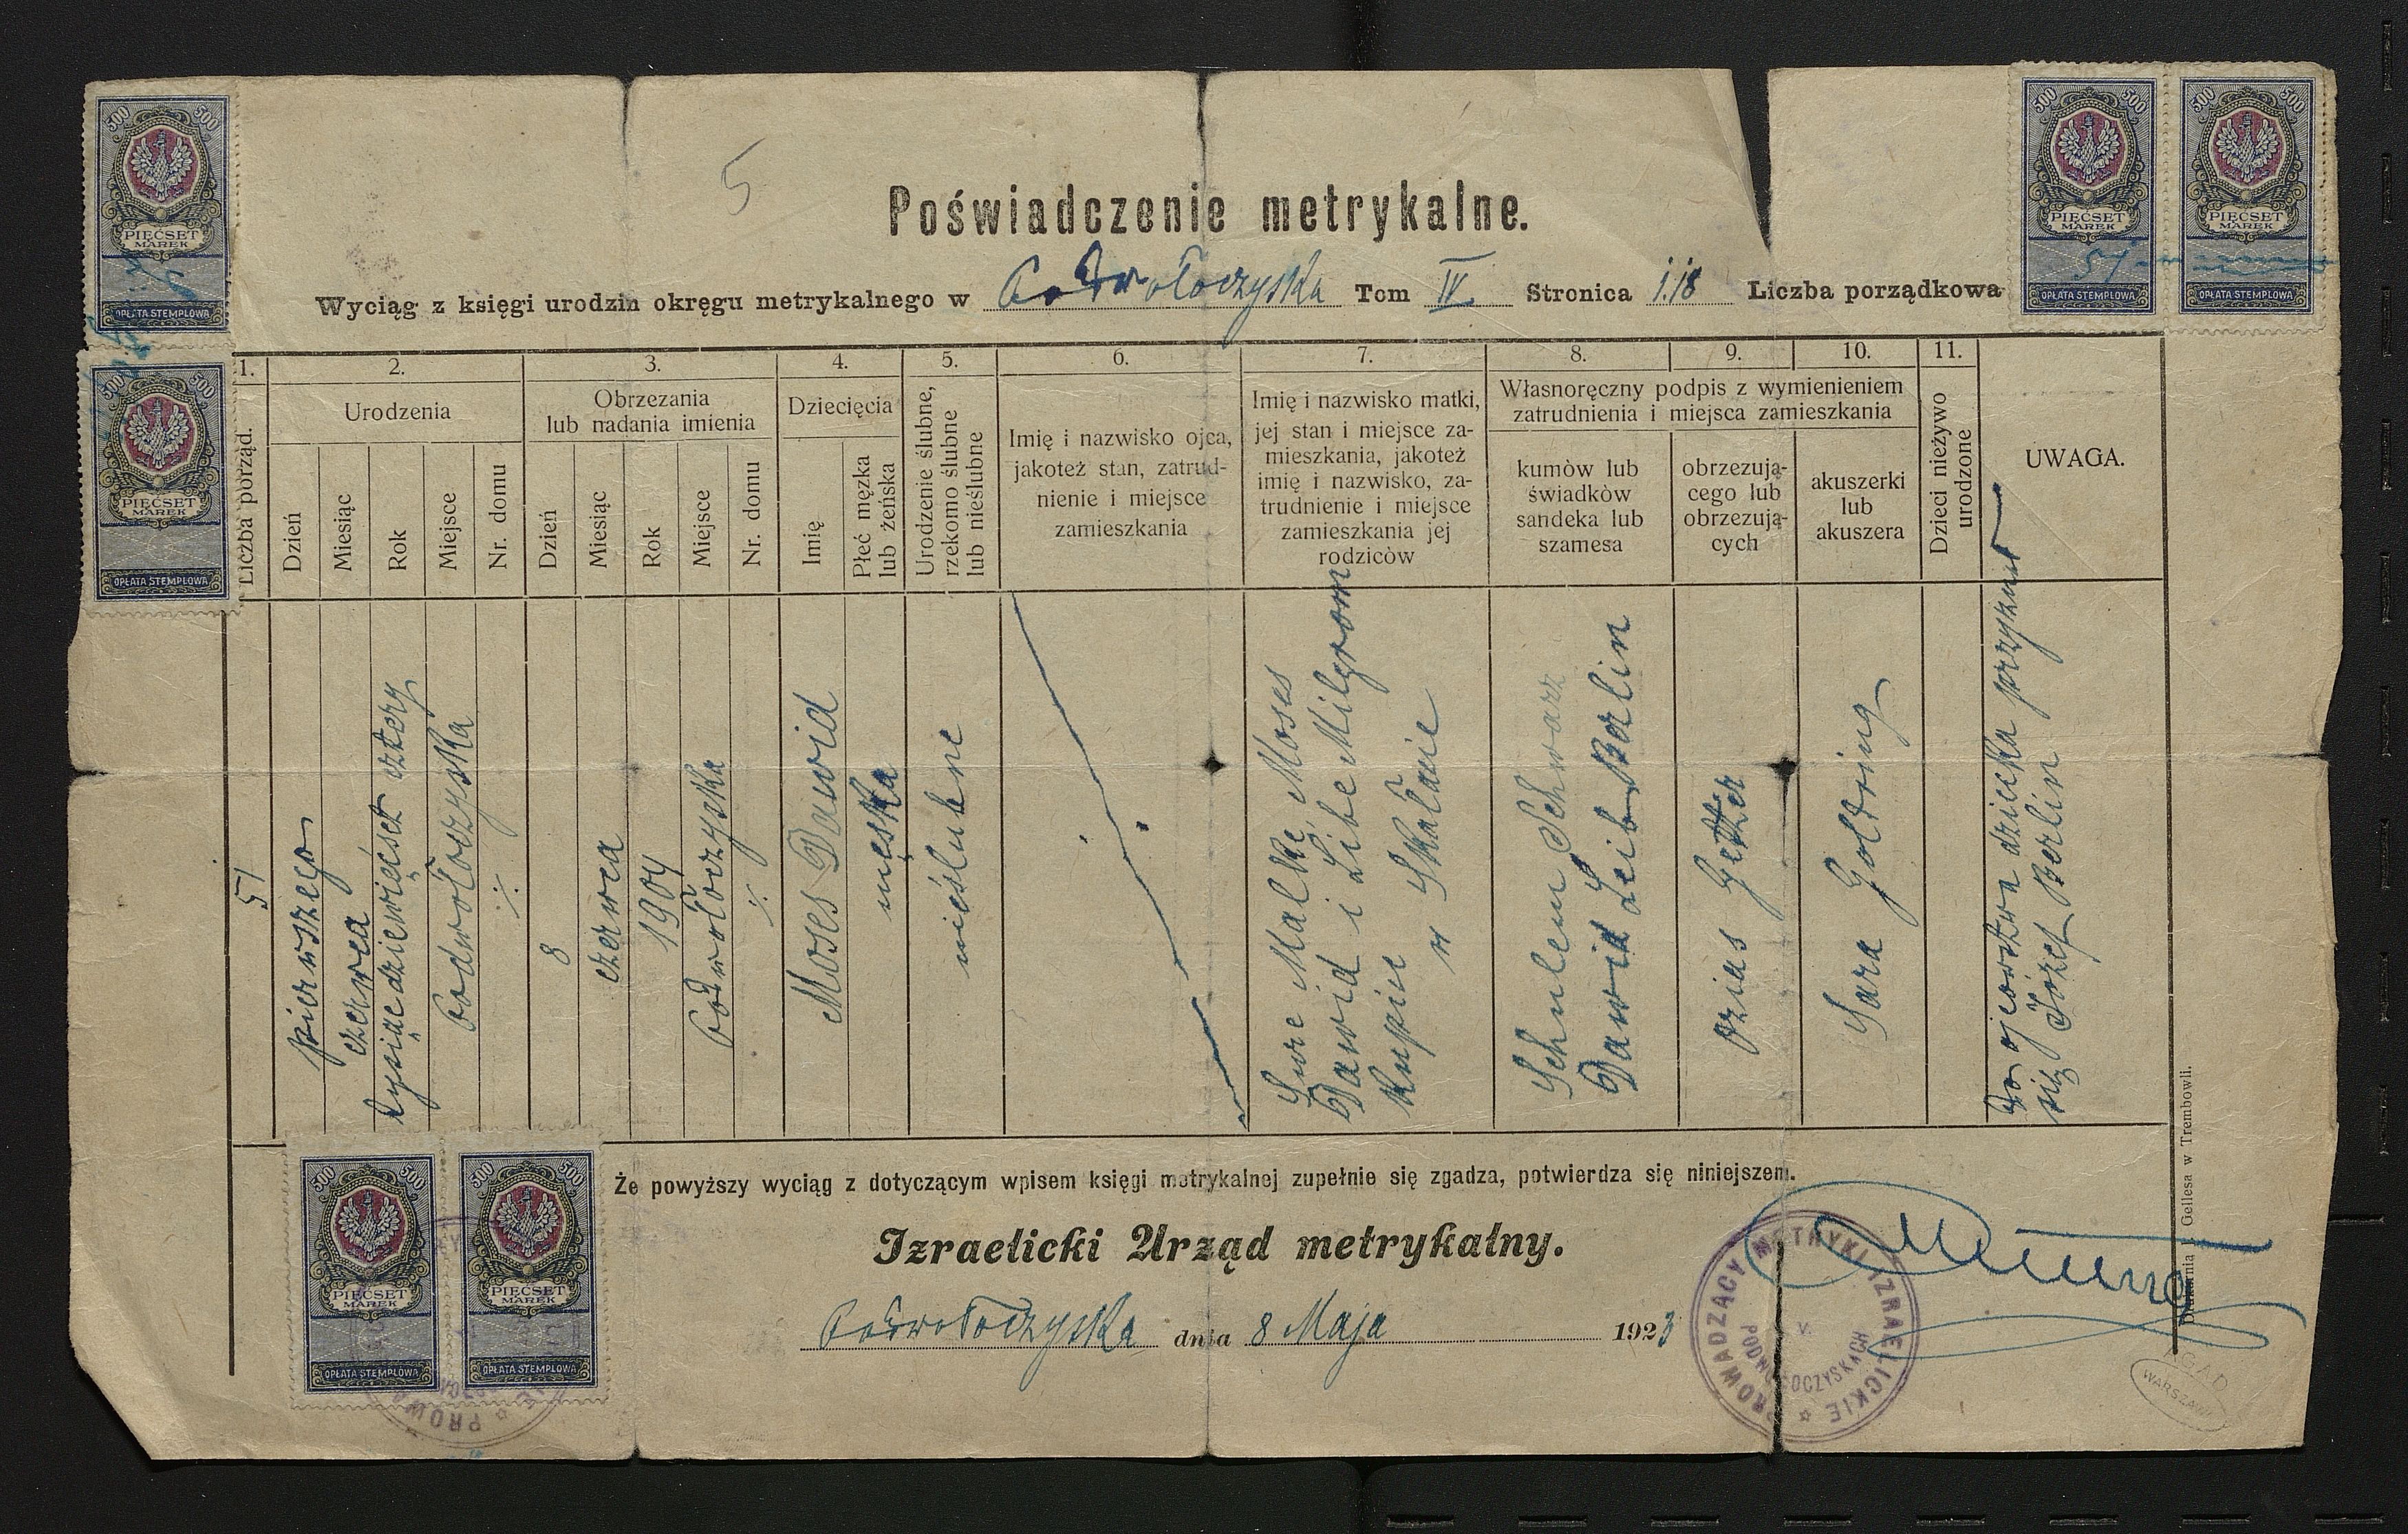 500 500
PIĘĆSET
MAREK
OPŁATA STEMPLOWA
500 500
PIĘĆSET
MAREK
OPŁATA STEMPLOWA
500 500
PIĘĆSET
MAREK
OPŁATA STEMPLOWA
500 500
PIĘĆSET
MAREK
OPŁATA STEMPLOWA
5
Poświadczenie metrykalne.
Wyciąg z księgi urodzin okręgu metrykalnego w Podwołoczyska Tom IV. Stronica 118 Liczba porządkowa 51
1.
Liczba porząd.
2.
Urodzenia
Dzień
Miesiąc
Rok
Miejsce
Nr. domu
3.
Obrzezania
lub nadania imienia
Dzień
Miesiąc
Rok
Miejsce
Nr. domu
4.
Dziecięcia
Imię
Płeć męzka
lub żeńska
5.
Urodzenie ślubne,
rzekomo ślubne
lub nieślubne
6.
Imię i nazwisko ojca,
jakoteż stan, zatrud-
nienie i miejsce
zamieszkania
7.
Imię i nazwisko matki,
jej stan i miejsce za-
mieszkania, jakoteż
imię i nazwisko, za-
trudnienie i miejsce
zamieszkania jej
rodziców
8. 9. 10.
Własnoręczny podpis z wymienieniem
zatrudnienia i miejsca zamieszkania
kumòw lub
świadkòw
sandeka lub
szamesa
obrzezują-
cego lub
obrzezują-
cych
akuszerki
lub
akuszera
11.
Dzieci nieżywo
urodzone
UWAGA.
51
pierwszego
czerwca
tysiąc dziewięćset cztery
Podwołoczyska
./.
8
czerwca
1904
Podwołoczyska
./.
Moses Dawid
męska
nieślubne
Sure Malke, Moses
Dawid i Libe Milgrom
kupiec w Skałacie
Schulem Schwarz
Dawid Leib Berlin
Ozias Getter
Sara Goldring
Do ojcowstwa dziecka przyznał
się Józef Berlin
Że powyższy wyciąg z dotyczącym wpisem księgi metrykalnej zupełnie się zgadza, potwierdza się niniejszem.
Izraelicki Urząd metrykalny.
Podwołoczyska dnia 8 Maja 1923
500 500
PIĘĆSET
MAREK
OPŁATA STEMPLOWA
500 500
PIĘĆSET
MAREK
OPŁATA STEMPLOWA
PROWADZĄCY METRYKI IZRAELICKIE
V.
PODWOŁOCZYSKACH
Drukarnia J. Gellesa w Trembowli.
AGAD
WARSZAWA